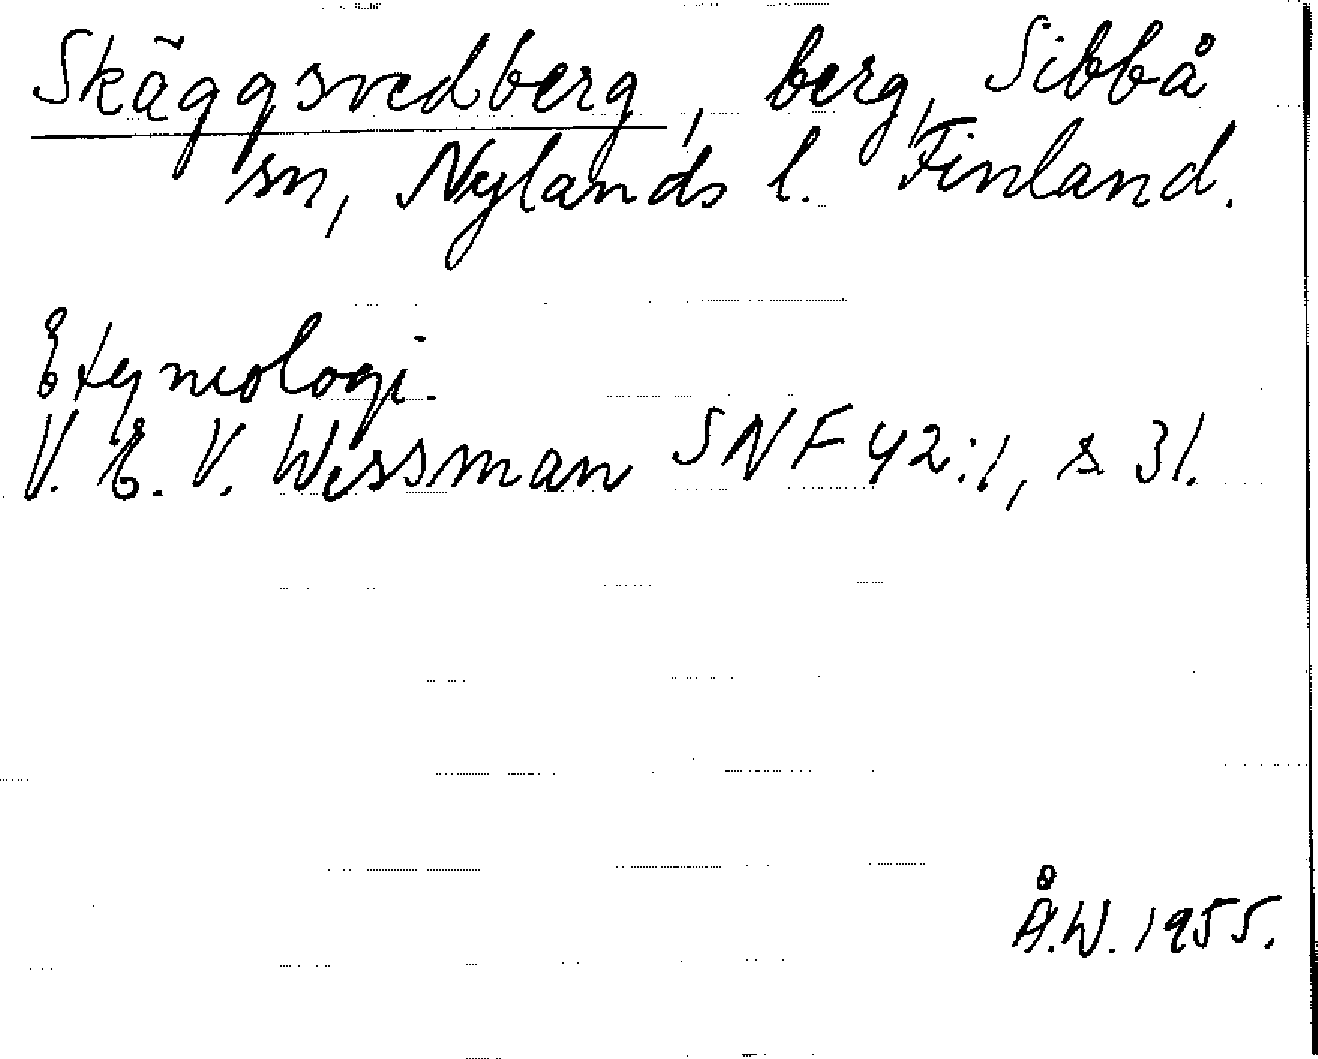 Skäggsvedberg, berg, Sibbå
sn, Nylands l. Finland.
Etymologi.
V. E. V. Wessman SNF 42:1, s 31.
Å.W. 1955.